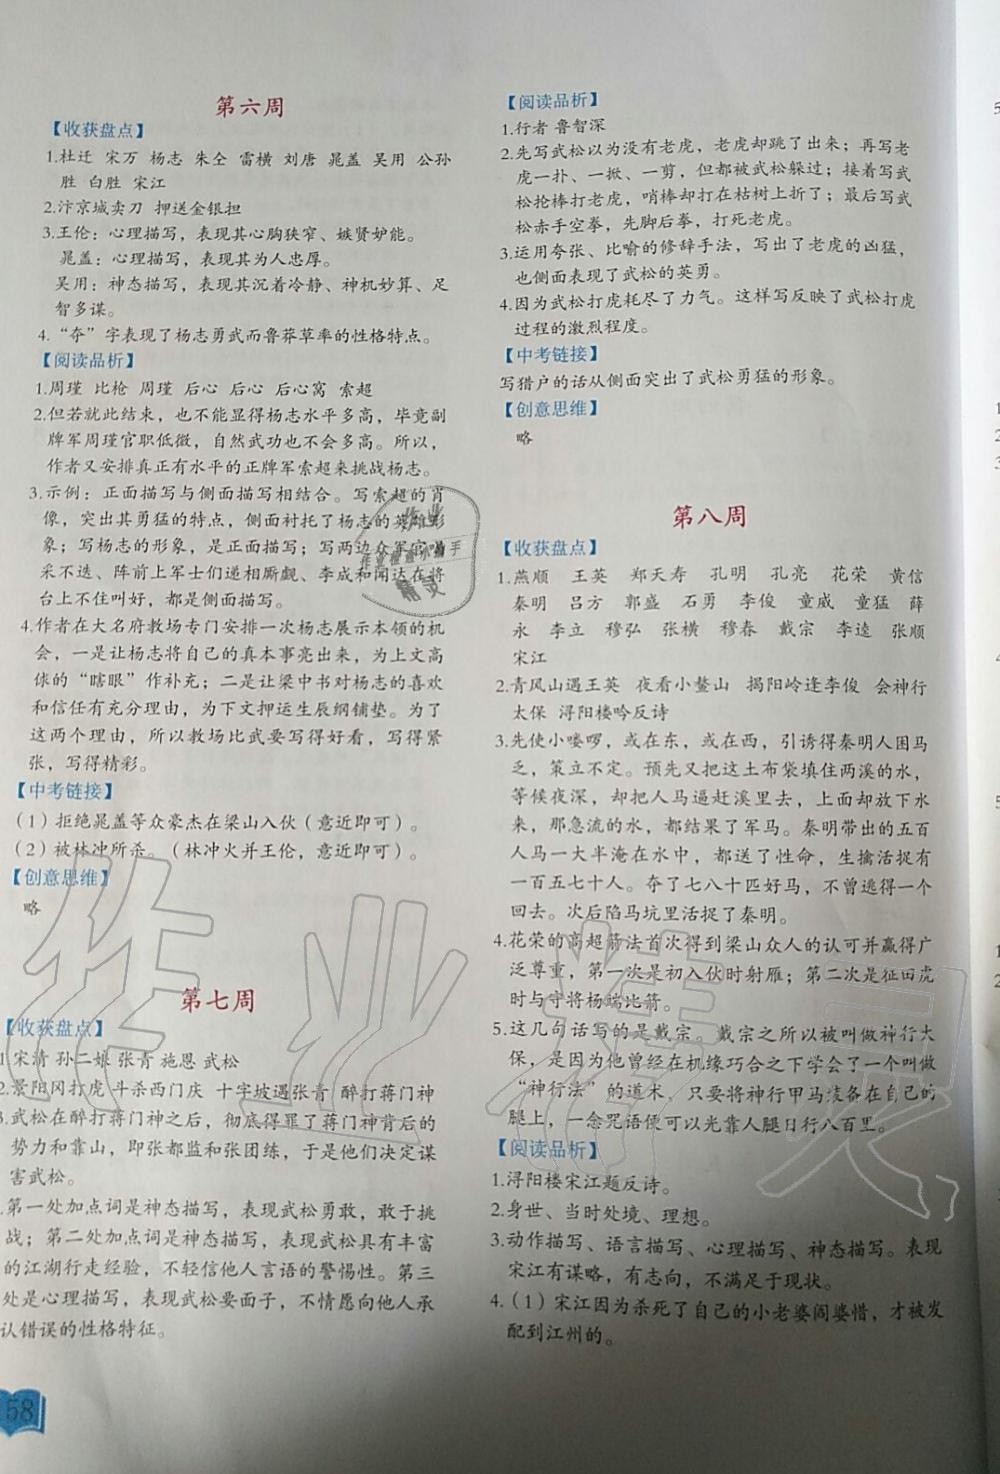 第六周
【收获盘点】
1.杜迁 宋万 杨志 朱仝 雷横 刘唐 晁盖 吴用 公孙
胜 白胜 宋江
2.汴京城卖刀 押送金银担
3.王伦：心理描写，表现其心胸狭窄、嫉贤妒能。
晁盖：心理描写，表现其为人忠厚。
吴用：神态描写，表现其沉着冷静、神机妙算、足
智多谋。
4.“夺”字表现了杨志勇武而鲁莽草率的性格特点。
【阅读品析】
1.周瑾 比枪 周瑾 后心 后心 后心窝 索超
2.但若就此结束，也不能显得杨志水平多高，毕竟副
牌军周瑾官职低微，自然武功也不会多高。所以，
作者又安排真正有水平的正牌军索超来挑战杨志。
3.示例：正面描写与侧面描写相结合。写索超的肖
像，突出其勇猛的特点，侧面衬托了杨志的英雄形
象；写杨志的形象，是正面描写；写两边众军官喝
采不迭、阵前上军士们递相厮觑、李成和闻达在将
台上不住叫好，都是侧面描写。
4.作者在大名府教场专门安排一次杨志展示本领的机
会，一是让杨志将自己的真本事亮出来，为上文高
俅的“瞎眼”作补充；二是让梁中书对杨志的喜欢
和信任有充分理由，为下文押运生辰纲铺垫。为了
这两个理由，所以教场比武要写得好看，写得紧
张，写得精彩。
【中考链接】
（1）拒绝晁盖等众豪杰在梁山入伙（意近即可）。
（2）被林冲所杀。（林冲火并王伦，意近即可）。
【创意思维】
略
第七周
【收获盘点】
1.宋清 孙二娘 张青 施恩 武松
2.景阳冈打虎 斗杀西门庆 十字坡遇张青 醉打蒋门神
3.武松在醉打蒋门神之后，彻底得罪了蒋门神背后的
势力和靠山，即张都监和张团练，于是他们决定谋
害武松。
第一处加点词是神态描写，表现武松勇敢，敢于挑
战；第二处加点词是神态描写，表现武松具有丰富
的江湖行走经验，不轻信他人言语的警惕性。第三
处是心理描写，表现武松要面子，不情愿向他人承
认错误的性格特征。
58
【阅读品析】
1.行者 鲁智深
2.先写武松以为没有老虎，老虎却跳了出来；再写老
虎一扑、一掀、一剪，但都被武松躲过；接着写武
松抡棒打老虎，哨棒却打在枯树上折了；最后写武
松赤手空拳，先脚后拳，打死老虎。
3.运用夸张、比喻的修辞手法，写出了老虎的凶猛，
也侧面表现了武松的英勇。
4.因为武松打虎耗尽了力气。这样写反映了武松打虎
过程的激烈程度。
【中考链接】
写猎户的话从侧面突出了武松勇猛的形象。
【创意思维】
略
第八周
【收获盘点】
1.燕顺 王英 郑天寿 孔明 孔亮 花荣 黄信
秦明 吕方 郭盛 石勇 李俊 童威 童猛 薛
永 李立 穆弘 张横 穆春 戴宗 李逵 张顺
宋江
2.青风山遇王英 夜看小鳌山 揭阳岭逢李俊 会神行
太保 浔阳楼吟反诗
3.先使小喽啰，或在东，或在西，引诱得秦明人困马
乏，策立不定。预先又把这土布袋填住两溪的水，
等候夜深，却把人马逼赶溪里去，上面却放下水
来，那急流的水，都结果了军马。秦明带出的五百
人马一大半淹在水中，都送了性命，生擒活捉有一
百五七十人。夺了七八十匹好马，不曾逃得一个
回去。次后陷马坑里活捉了秦明。
4.花荣的高超箭法首次得到梁山众人的认可并赢得广
泛尊重，第一次是初入伙时射雁；第二次是征田虎
时与守将杨端比箭。
5.这几句话写的是戴宗。戴宗之所以被叫做神行太
保，是因为他曾经在机缘巧合之下学会了一个叫做
“神行法”的道术，只要将神行甲马装备在自己的
腿上，一念咒语便可以光靠人腿日行八百里。
【阅读品析】
1.浔阳楼宋江题反诗。
2.身世、当时处境、理想。
3.动作描写、语言描写、心理描写、神态描写。表现
宋江有谋略，有志向，不满足于现状。
4.（1）宋江因为杀死了自己的小老婆阎婆惜，才被发
配到江州的。